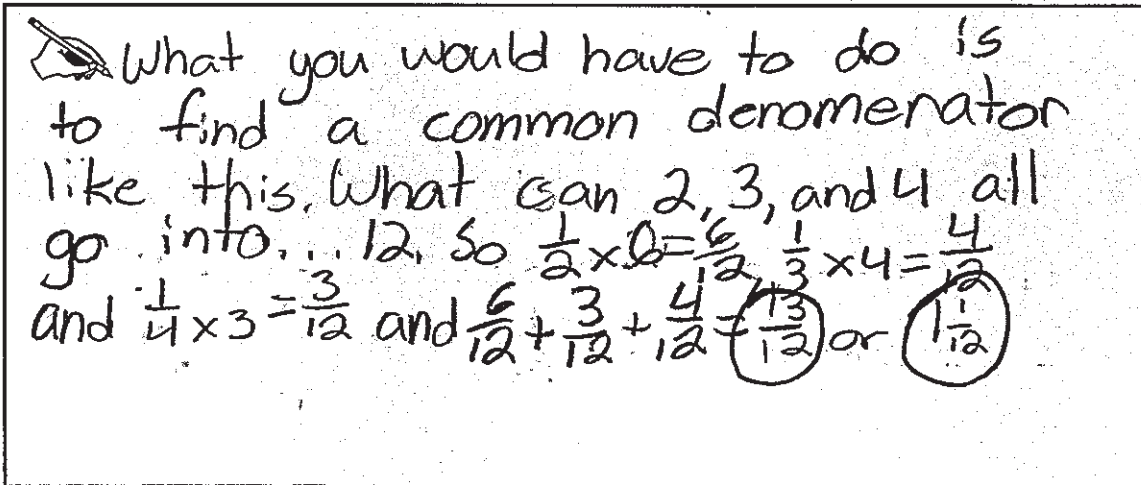 What you would have to do is
to find a common denomenator
like this. What can 2, 3, and 4 all
go into... 12. So 1/2 x 6 = 6/12, 1/3 x 4 = 4/12
and 1/4 x 3 = 3/12 and 6/12 + 3/12 + 4/12 = 13/12 or 1 1/12